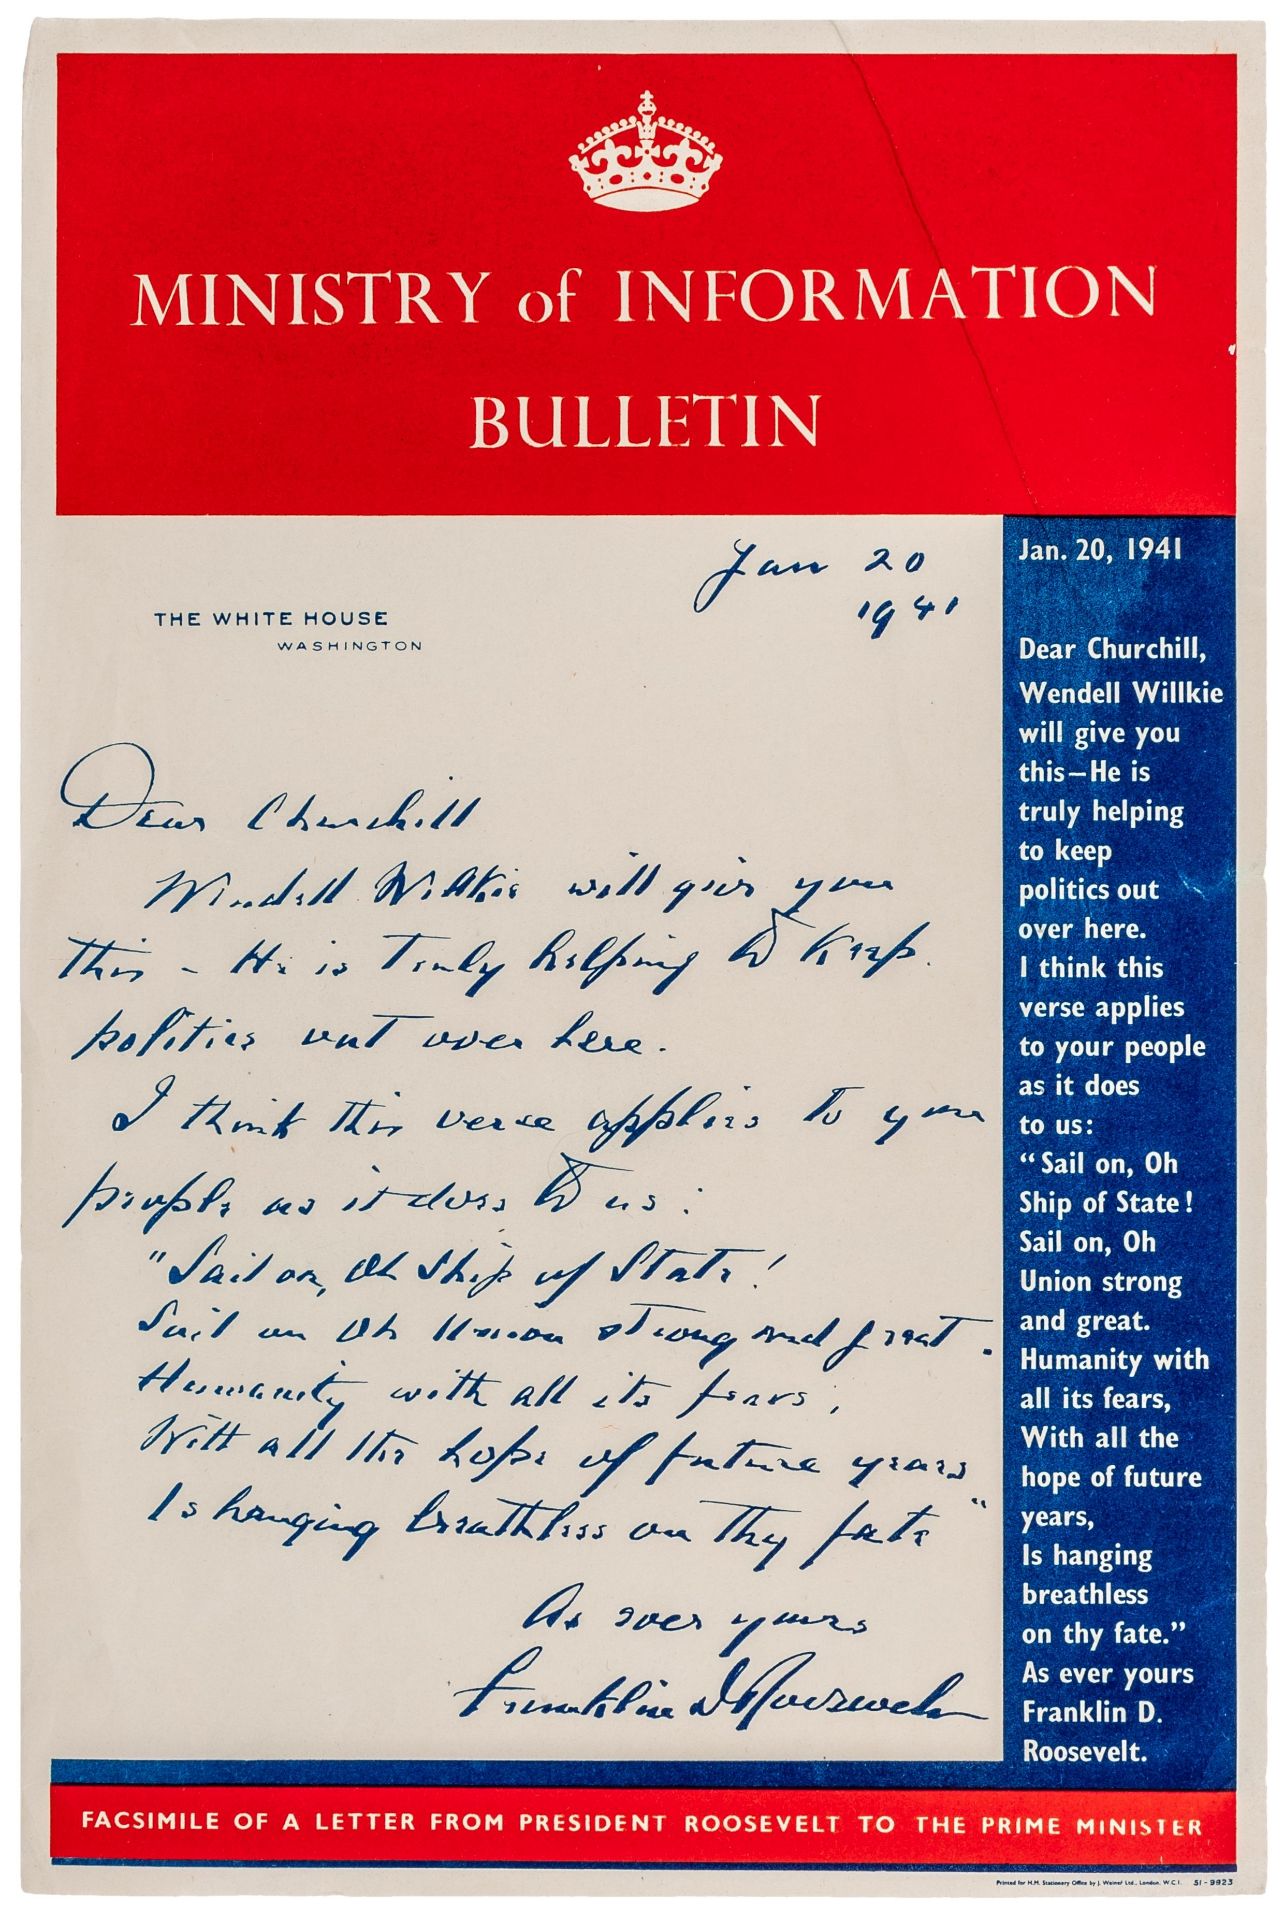 MINISTRY of INFORMATION
BULLETIN
THE WHITE HOUSE
WASHINGTON
Jan 20
1941
Dear Churchill
Wendell Willkie will give you
this - He is truly helping to keep
politics out over here.
I think this verse applies to your
people as it does to us:
"Sail on, Oh Ship of State!
Sail on Oh Union strong and great.
Humanity with all its fears,
With all the hope of future years
Is hanging breathless on thy fate"
As ever yours
Franklin D Roosevelt
Jan. 20, 1941
Dear Churchill,
Wendell Willkie
will give you
this—He is
truly helping
to keep
politics out
over here.
I think this
verse applies
to your people
as it does
to us:
"Sail on, Oh
Ship of State!
Sail on, Oh
Union strong
and great.
Humanity with
all its fears,
With all the
hope of future
years,
Is hanging
breathless
on thy fate."
As ever yours
Franklin D.
Roosevelt.
FACSIMILE OF A LETTER FROM PRESIDENT ROOSEVELT TO THE PRIME MINISTER
Printed for H.M. Stationery Office by J. Weiner Ltd., London, W.C.1. 51-9923